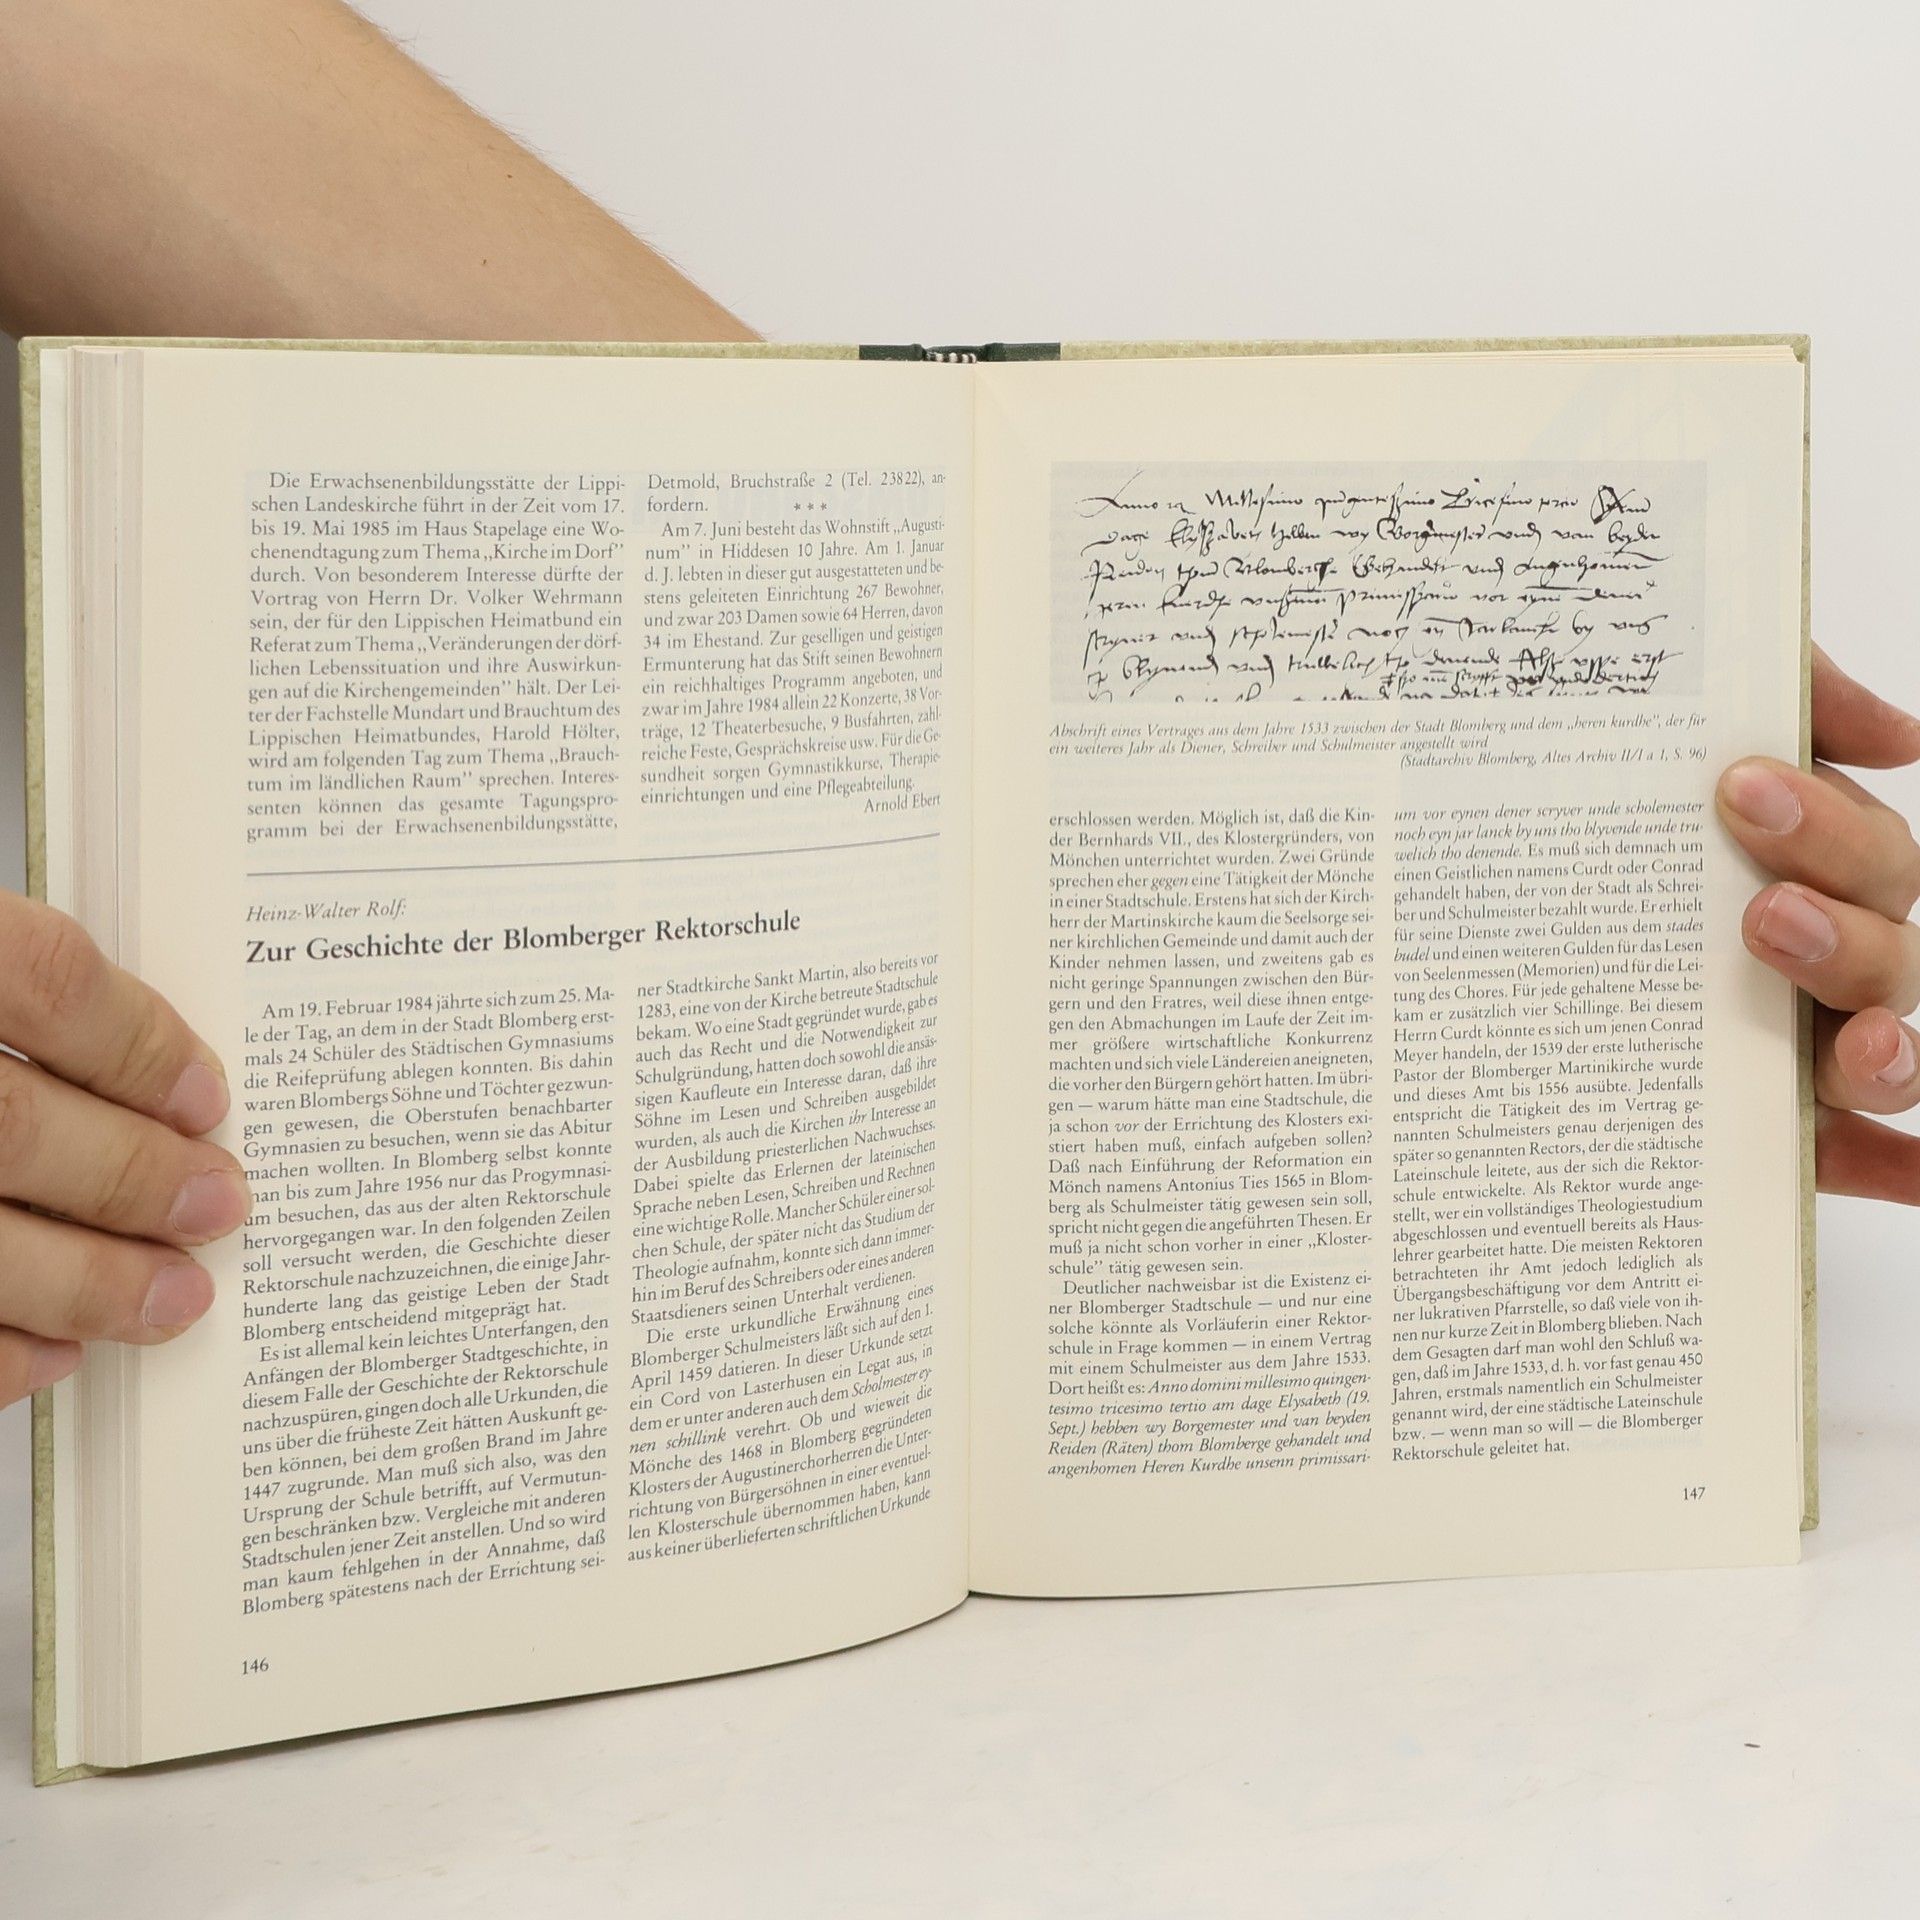 Die Erwachsenenbildungsstätte der Lippi-
schen Landeskirche führt in der Zeit vom 17.
bis 19. Mai 1985 im Haus Stapelage eine Wo-
chenendtagung zum Thema „Kirche im Dorf”
durch. Von besonderem Interesse dürfte der
Vortrag von Herrn Dr. Volker Wehrmann
sein, der für den Lippischen Heimatbund ein
Referat zum Thema „Veränderungen der dörf-
lichen Lebenssituation und ihre Auswirkun-
gen auf die Kirchengemeinden” hält. Der Lei-
ter der Fachstelle Mundart und Brauchtum des
Lippischen Heimatbundes, Harold Hölter,
wird am folgenden Tag zum Thema „Brauch-
tum im ländlichen Raum” sprechen. Interes-
senten können das gesamte Tagungspro-
gramm bei der Erwachsenenbildungsstätte,
Detmold, Bruchstraße 2 (Tel. 23822), an-
fordern.
* * *
Am 7. Juni besteht das Wohnstift „Augusti-
num” in Hiddesen 10 Jahre. Am 1. Januar
d. J. lebten in dieser gut ausgestatteten und be-
stens geleiteten Einrichtung 267 Bewohner,
und zwar 203 Damen sowie 64 Herren, davon
34 im Ehestand. Zur geselligen und geistigen
Ermunterung hat das Stift seinen Bewohnern
ein reichhaltiges Programm angeboten, und
zwar im Jahre 1984 allein 22 Konzerte, 38 Vor-
träge, 12 Theaterbesuche, 9 Busfahrten, zahl-
reiche Feste, Gesprächskreise usw. Für die Ge-
sundheit sorgen Gymnastikkurse, Therapie-
einrichtungen und eine Pflegeabteilung.
Arnold Ebert
Heinz-Walter Rolf:
Zur Geschichte der Blomberger Rektorschule
Am 19. Februar 1984 jährte sich zum 25. Ma-
le der Tag, an dem in der Stadt Blomberg erst-
mals 24 Schüler des Städtischen Gymnasiums
die Reifeprüfung ablegen konnten. Bis dahin
waren Blombergs Söhne und Töchter gezwun-
gen gewesen, die Oberstufen benachbarter
Gymnasien zu besuchen, wenn sie das Abitur
machen wollten. In Blomberg selbst konnte
man bis zum Jahre 1956 nur das Progymnasi-
um besuchen, das aus der alten Rektorschule
hervorgegangen war. In den folgenden Zeilen
soll versucht werden, die Geschichte dieser
Rektorschule nachzuzeichnen, die einige Jahr-
hunderte lang das geistige Leben der Stadt
Blomberg entscheidend mitgeprägt hat.
Es ist allemal kein leichtes Unterfangen, den
Anfängen der Blomberger Stadtgeschichte, in
diesem Falle der Geschichte der Rektorschule
nachzuspüren, gingen doch alle Urkunden, die
uns über die früheste Zeit hätten Auskunft ge-
ben können, bei dem großen Brand im Jahre
1447 zugrunde. Man muß sich also, was den
Ursprung der Schule betrifft, auf Vermutun-
gen beschränken bzw. Vergleiche mit anderen
Stadtschulen jener Zeit anstellen. Und so wird
man kaum fehlgehen in der Annahme, daß
Blomberg spätestens nach der Errichtung sei-
ner Stadtkirche Sankt Martin, also bereits vor
1283, eine von der Kirche betreute Stadtschule
bekam. Wo eine Stadt gegründet wurde, gab es
auch das Recht und die Notwendigkeit zur
Schulgründung, hatten doch sowohl die ansäs-
sigen Kaufleute ein Interesse daran, daß ihre
Söhne im Lesen und Schreiben ausgebildet
wurden, als auch die Kirchen ihr Interesse an
der Ausbildung priesterlichen Nachwuchses.
Dabei spielte das Erlernen der lateinischen
Sprache neben Lesen, Schreiben und Rechnen
eine wichtige Rolle. Mancher Schüler einer sol-
chen Schule, der später nicht das Studium der
Theologie aufnahm, konnte sich dann immer-
hin im Beruf des Schreibers oder eines anderen
Staatsdieners seinen Unterhalt verdienen.
Die erste urkundliche Erwähnung eines
Blomberger Schulmeisters läßt sich auf den 1.
April 1459 datieren. In dieser Urkunde setzt
ein Cord von Lasterhusen ein Legat aus, in
dem er unter anderen auch dem Scholmester ey-
nen schillink verehrt. Ob und wieweit die
Mönche des 1468 in Blomberg gegründeten
Klosters der Augustinerchorherren die Unter-
richtung von Bürgersöhnen in einer eventuel-
len Klosterschule übernommen haben, kann
aus keiner überlieferten schriftlichen Urkunde
146
Abschrift eines Vertrages aus dem Jahre 1533 zwischen der Stadt Blomberg und dem „heren kurdhe”, der für
ein weiteres Jahr als Diener, Schreiber und Schulmeister angestellt wird
(Stadtarchiv Blomberg, Altes Archiv II/I a 1, S. 96)
erschlossen werden. Möglich ist, daß die Kin-
der Bernhards VII., des Klostergründers, von
Mönchen unterrichtet wurden. Zwei Gründe
sprechen eher gegen eine Tätigkeit der Mönche
in einer Stadtschule. Erstens hat sich der Kirch-
herr der Martinskirche kaum die Seelsorge sei-
ner kirchlichen Gemeinde und damit auch der
Kinder nehmen lassen, und zweitens gab es
nicht geringe Spannungen zwischen den Bür-
gern und den Fratres, weil diese ihnen entge-
gen den Abmachungen im Laufe der Zeit im-
mer größere wirtschaftliche Konkurrenz
machten und sich viele Ländereien aneigneten,
die vorher den Bürgern gehört hatten. Im übri-
gen — warum hätte man eine Stadtschule, die
ja schon vor der Errichtung des Klosters exi-
stiert haben muß, einfach aufgeben sollen?
Daß nach Einführung der Reformation ein
Mönch namens Antonius Ties 1565 in Blom-
berg als Schulmeister tätig gewesen sein soll,
spricht nicht gegen die angeführten Thesen. Er
muß ja nicht schon vorher in einer „Kloster-
schule” tätig gewesen sein.
Deutlicher nachweisbar ist die Existenz ei-
ner Blomberger Stadtschule — und nur eine
solche könnte als Vorläuferin einer Rektor-
schule in Frage kommen — in einem Vertrag
mit einem Schulmeister aus dem Jahre 1533.
Dort heißt es: Anno domini millesimo quingen-
tesimo tricesimo tertio am dage Elysabeth (19.
Sept.) hebben wy Borgemester und van beyden
Reiden (Räten) thom Blomberge gehandelt und
angenhomen Heren Kurdhe unsenn primissari-
um vor eynen dener scryver unde scholemester
noch eyn jar lanck by uns tho blyvende unde tru-
welich tho denende. Es muß sich demnach um
einen Geistlichen namens Curdt oder Conrad
gehandelt haben, der von der Stadt als Schrei-
ber und Schulmeister bezahlt wurde. Er erhielt
für seine Dienste zwei Gulden aus dem stades
budel und einen weiteren Gulden für das Lesen
von Seelenmessen (Memorien) und für die Lei-
tung des Chores. Für jede gehaltene Messe be-
kam er zusätzlich vier Schillinge. Bei diesem
Herrn Curdt könnte es sich um jenen Conrad
Meyer handeln, der 1539 der erste lutherische
Pastor der Blomberger Martinikirche wurde
und dieses Amt bis 1556 ausübte. Jedenfalls
entspricht die Tätigkeit des im Vertrag ge-
nannten Schulmeisters genau derjenigen des
später so genannten Rectors, der die städtische
Lateinschule leitete, aus der sich die Rektor-
schule entwickelte. Als Rektor wurde ange-
stellt, wer ein vollständiges Theologiestudium
abgeschlossen und eventuell bereits als Haus-
lehrer gearbeitet hatte. Die meisten Rektoren
betrachteten ihr Amt jedoch lediglich als
Übergangsbeschäftigung vor dem Antritt ei-
ner lukrativen Pfarrstelle, so daß viele von ih-
nen nur kurze Zeit in Blomberg blieben. Nach
dem Gesagten darf man wohl den Schluß wa-
gen, daß im Jahre 1533, d. h. vor fast genau 450
Jahren, erstmals namentlich ein Schulmeister
genannt wird, der eine städtische Lateinschule
bzw. — wenn man so will — die Blomberger
Rektorschule geleitet hat.
147